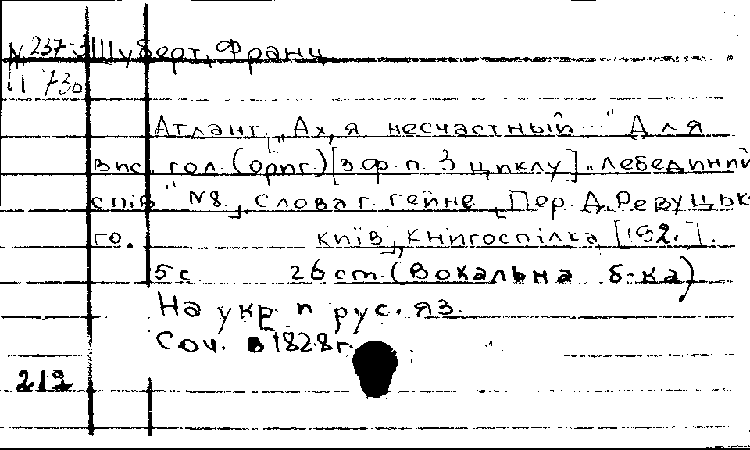 N 237-3 Шуберт, Франц
П 730
Атлант „Ах, я несчастный..." Для
вис. гол. (ориг) [з ф.п. З циклу] „Лебединий
спів" №8, Слова Г. Гейне, Пер. Д. Ревуцько
го. Київ, Книгоспілка, [192.].
5 с 26 cm. (Вокальна б-ка)
На укр. и рус. яз.
Соч. в 1828 г.
212